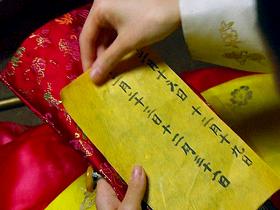 月十六日 十二月十九日
月二十二日 十二月三十一日